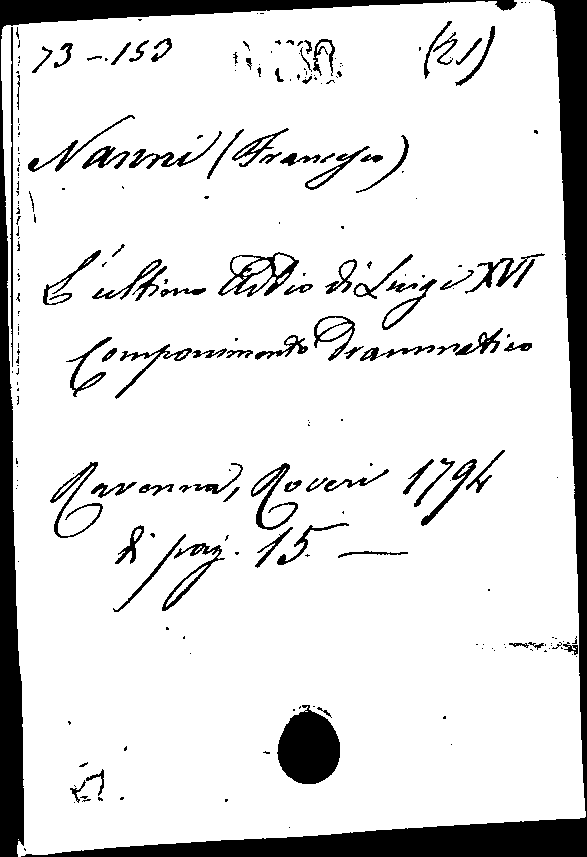 73-153 (21)
Nanni (Francesco)
L'ultimo Addio di Luigi XVI
Componimento Drammatico
Ravenna, Roveri 1794
di pag. 15 —